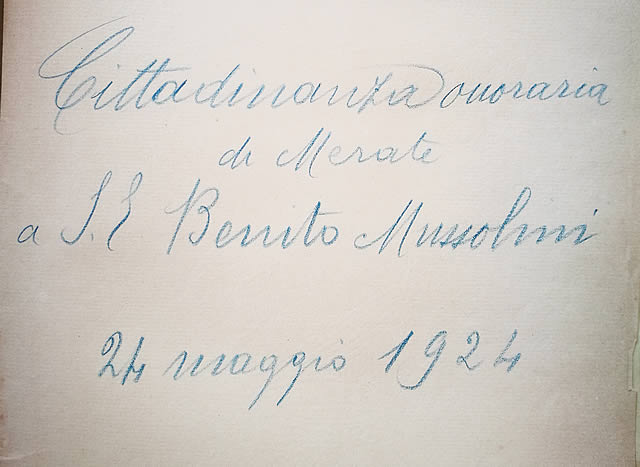 Cittadinanza onoraria
di Merate
a S.E Benito Mussolini
24 maggio 1924